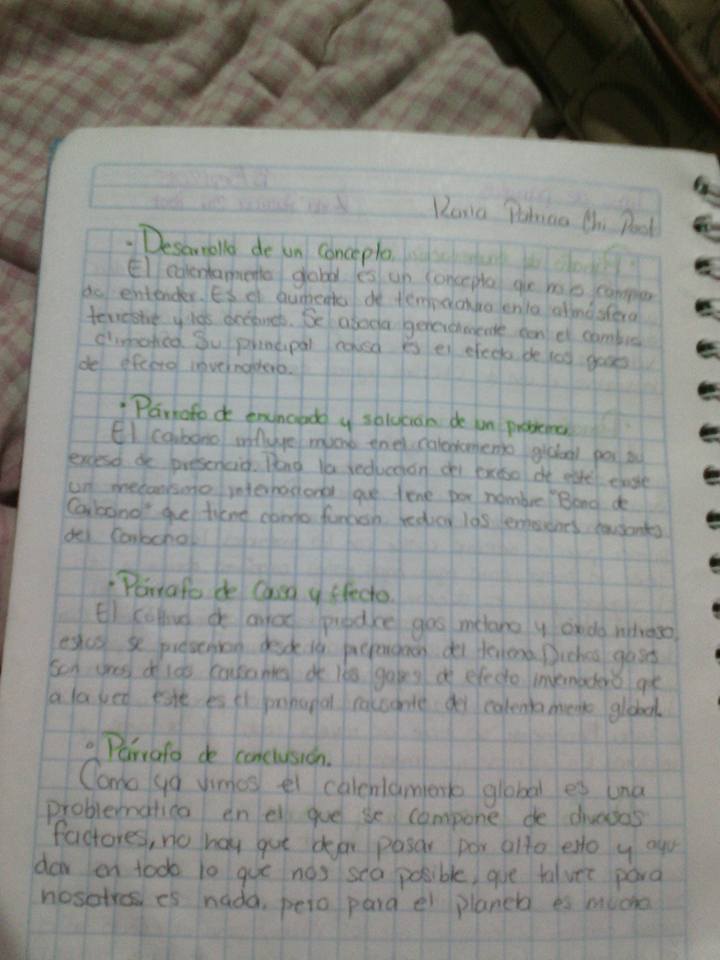 Karla Patricia Chi Poot
· Desarrollo de un Concepto.
El calentamiento global es un concepto que no es
de entender. Es el aumento de temperatura en la atmósfera
terrestre y los océanos. Se asocia generalmente con el cambio
climatico. Su principal causa es el efecto de los gases
de efecto invernadero.
· Párrafo de enunciado y solución de un problema
El carbono influye mucho en el calentamiento global por su
exceso de presencia. Para la reducción del exceso de este existe
un mecanismo internacional que tiene por nombre "Bono de
Carbono" que tiene como función reducir las emisiones causantes
del Carbono.
· Párrafo de Casa y Efecto.
El cultivo de arroz produce gas metano y óxido nitroso,
estos se presentan desde la preparación del terreno. Dichos gases
son unos de los causantes de los gases de efecto invernadero que
a la vez este es el principal causante del calentamiento global
· Párrafo de conclusión.
Como ya vimos el calentamiento global es una
problematica en el que se compone de diversos
factores, no hay que dejar pasar por alto esto y ayu
dar en todo lo que nos sea posible, que tal vez para
nosotros es nada, pero para el planeta es mucho